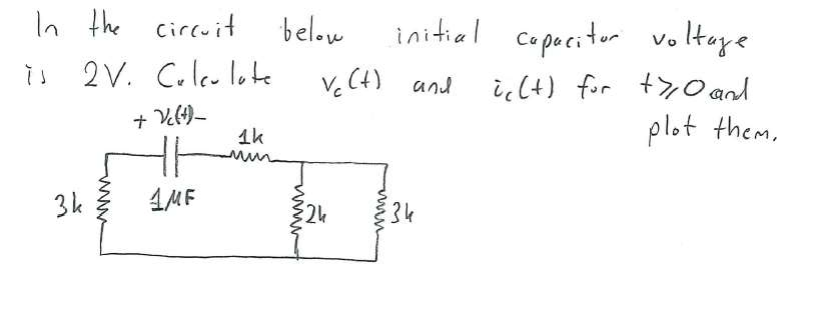 In the circuit below initial capacitor voltage
is 2V. Calculate Vc(t) and ic(t) for t≥0 and
plot them.
+ Vc(t) -
1k
3k
1MF
2k
3k